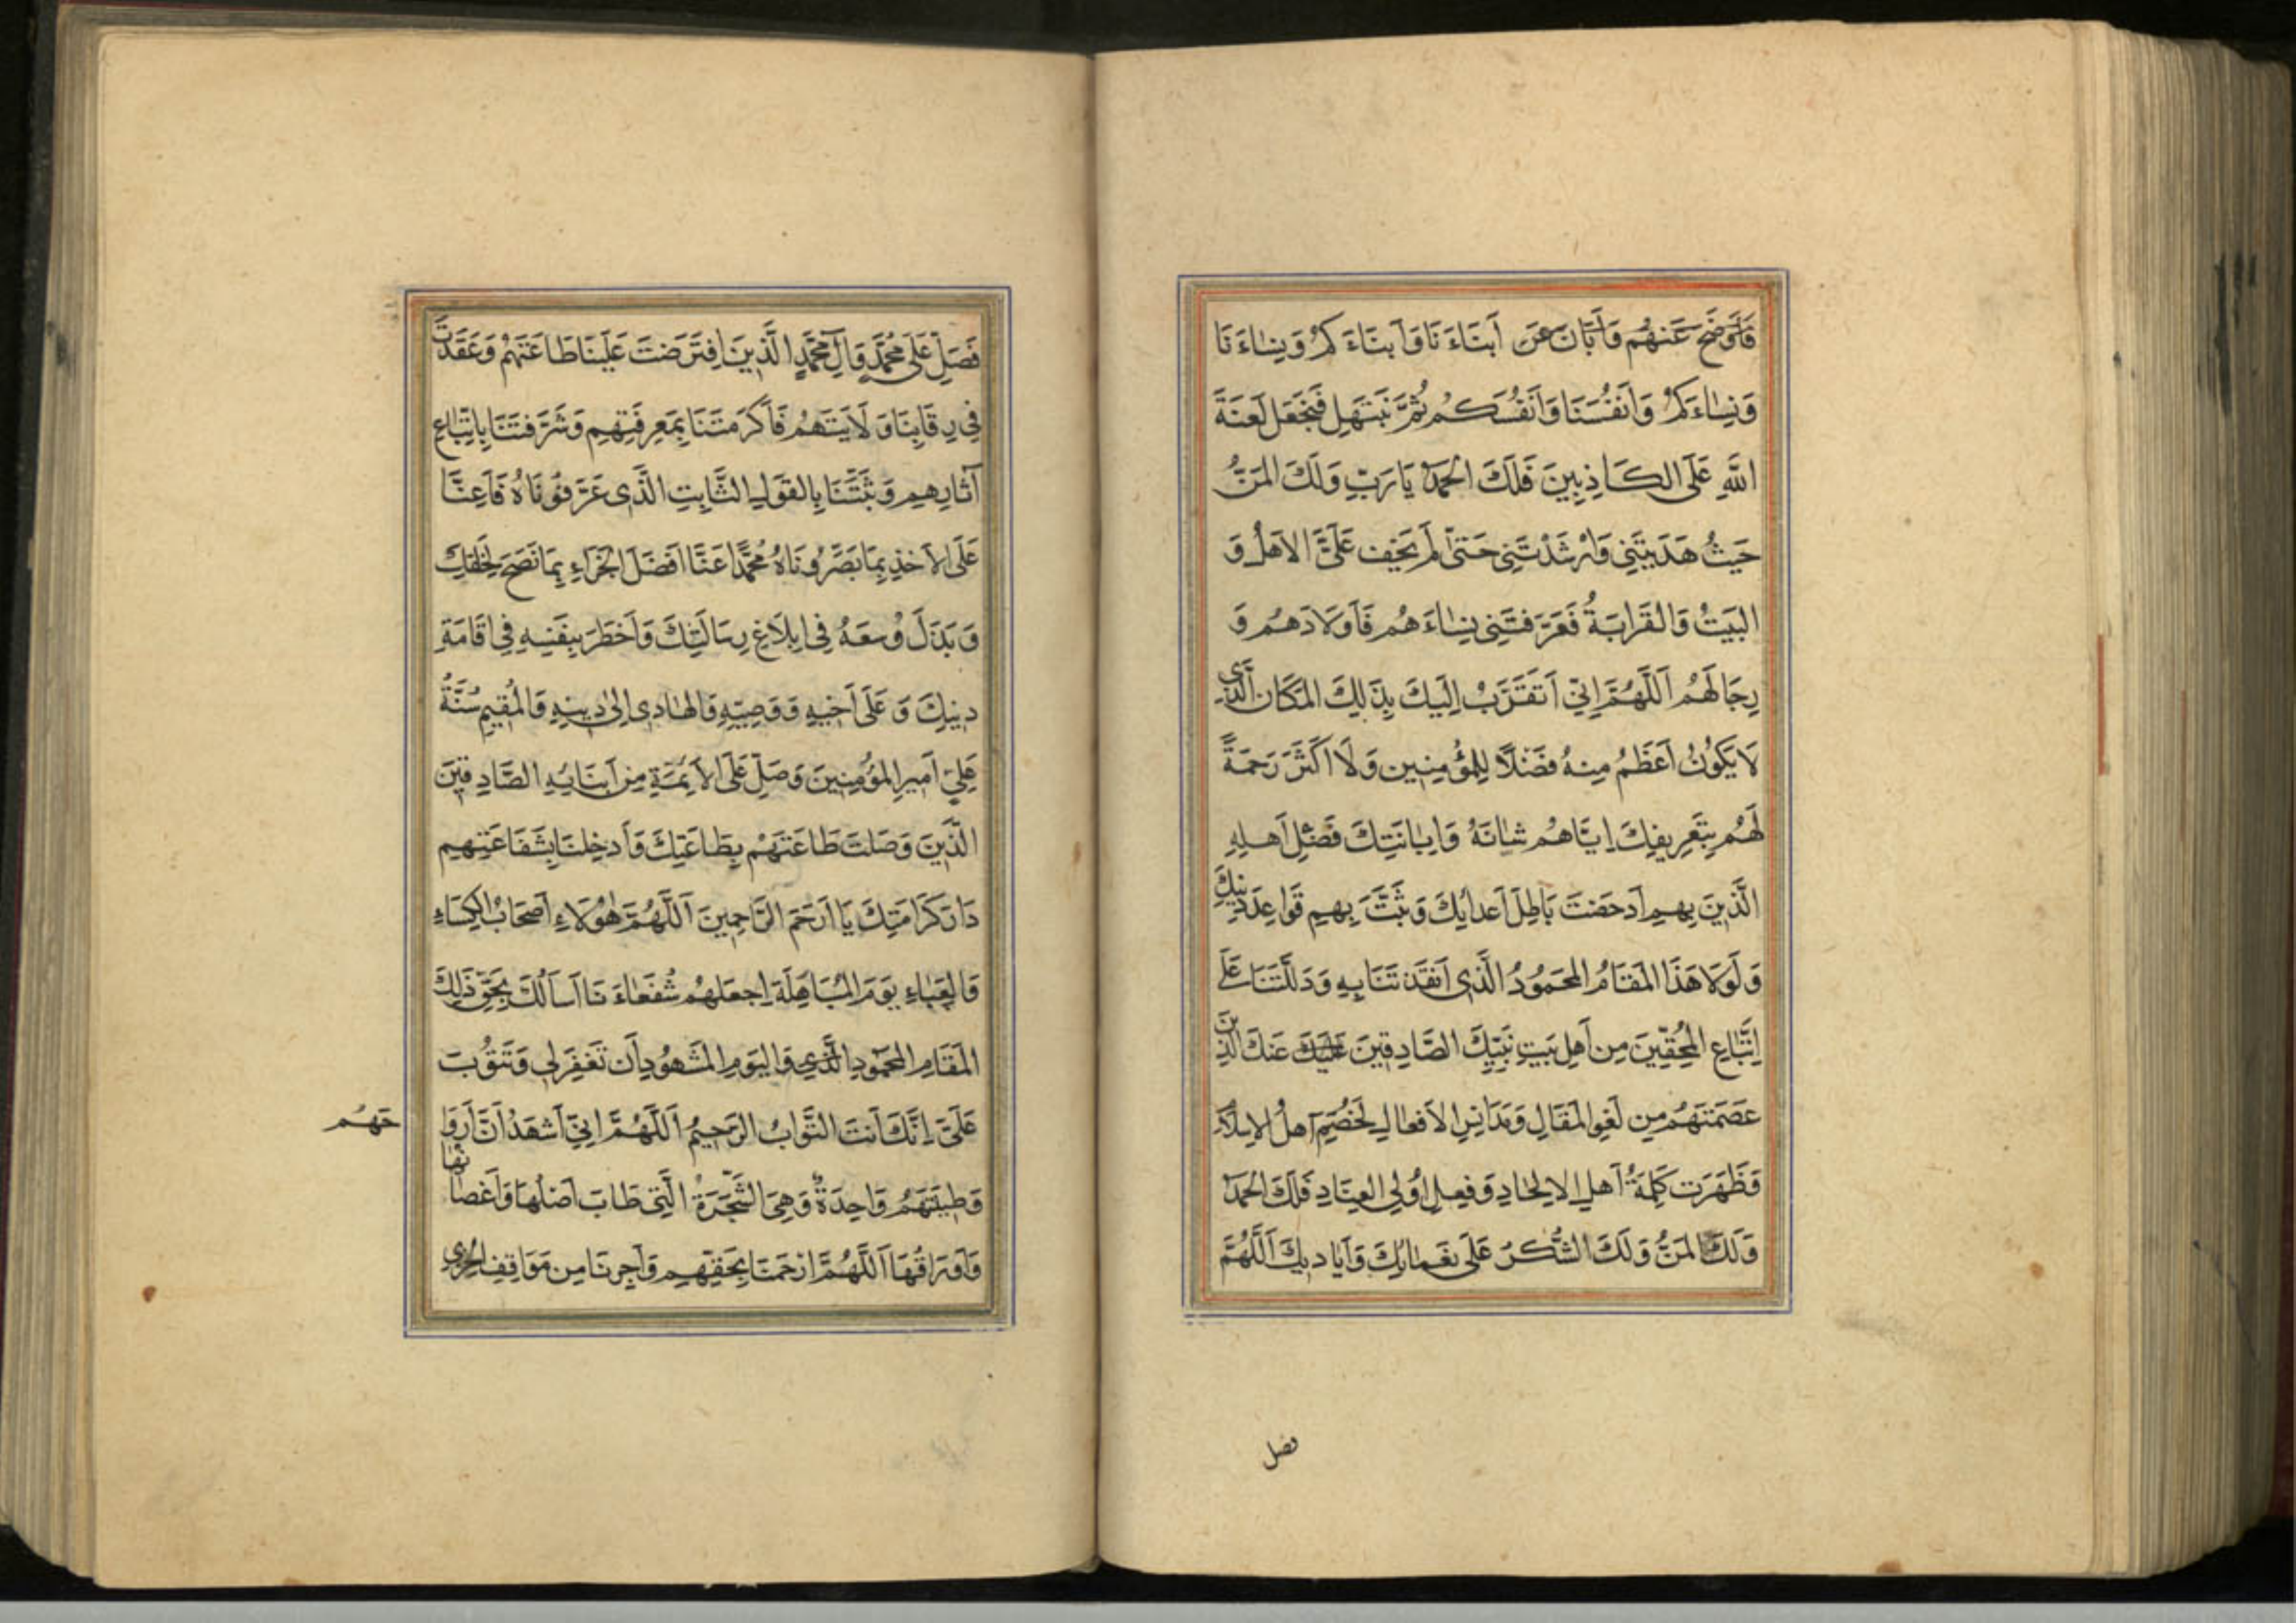 فَأَوْضَحَ عَنْهُم وَأَبَانَ عَن أَبْنَاءَنَا وَأَبْنَاءَكُمْ وَنِسَاءَنَا
وَنِسَاءَكُمْ وَأَنْفُسَنَا وَأَنْفُسَكُم ثُمَّ نَبْتَهِل فَنَجْعَل لَعْنَةَ
اللَّهِ عَلَى الكَاذِبِينَ فَلَكَ الحَمْدُ يَا رَبِّ وَلَكَ المَنُّ
حَيْثُ هَدَيْتَنِي وَأَرْشَدْتَنِي حَتّى لَم يَخْفَ عَلَيَّ الأَهْلُ وَ
البَيْتُ وَالقَرَابَةُ فَعَرَّفْتَنِي نِسَاءَهُم فَأَوْلَادَهُم وَ
رِجَالَهُم اَللَّهُمَّ اِنِّي أَتَقَرَّبُ اِلَيْكَ بِذَلِكَ المَكَان الَّذِي
لَا يَكُونُ أَعْظَمُ مِنْهُ فَضْلًا لِلْمُؤْمِنِين وَلَا أَكْثَرَ رَحْمَةً
لَهُم بِتَعْرِيفِكَ اِيَّاهُم شَانَهُ وَاِبَانَتِكَ فَضْلَ أَهْلِهِ
الَّذِينَ بِهِم أَدْحَضْتَ بَاطِلَ أَعْدَائِكَ وَثَبَّتَّ بِهِم قَوَاعِدَ دِينِكَ
وَلَوْلَا هَذَا المَقَامُ المَحْمُودُ الَّذِي أَنْقَذْتَنَا بِهِ وَدَلَلْتَنَا عَلَى
اِتِّبَاعِ المُحِقِّينَ مِن أَهْلِ بَيْتِ نَبِيِّكَ الصَّادِقِينَ عَنْكَ الَّذِينَ
عَصَمْتَهُم مِن لَغْوِ المَقَالِ وَمَدَانِسِ الأَفْعَالِ لَخُصِمَ أَهْلُ الاِسْلَامِ
وَظَهَرَت كَلِمَةُ أَهْلِ الاِلحَادِ وَفِعْلِ اُولِي العِنَادِ فَلَكَ الحَمْدُ
وَلَكَ المَنُّ وَلَكَ الشُّكْرُ عَلَى نَعْمَائِكَ وَأَيَادِيكَ اَللَّهُمَّ
فصل
فَصَلِّ عَلَى مُحَمَّدٍ وَآلِ مُحَمَّدٍ الَّذِينَ اِفْتَرَضْتَ عَلَيْنَا طَاعَتَهُم وَعَقَدْتَ
فِي رِقَابِنَا وَلَايَتَهُم فَأَكْرَمْتَنَا بِمَعْرِفَتِهِم وَشَرَّفْتَنَا بِاتِّبَاعِ
آثَارِهِم وَثَبَّتَّنَا بِالقَوْلِ الثَّابِتِ الَّذِي عَرَّفُونَاهُ فَأَعِنَّا
عَلَى الأَخْذِ بِمَا بَصَّرُونَاهُ مُحَمَّدًا عَنَّا أَفْضَلَ الجَزَاءِ بِمَا نَصَحَ لِخَلْقِكَ
وَبَذَلَ وُسْعَهُ فِي اِبْلَاغِ رِسَالَتِكَ وَأَخْطَرَ بِنَفْسِهِ فِي اِقَامَةِ
دِينِكَ وَعَلَى أَخِيهِ وَوَصِيِّهِ وَالهَادِي اِلَى دِينِهِ وَالمُقِيمِ سُنَّةُ
عَلِيّ أَمِيرِ المُؤْمِنِينَ وَصَلِّ عَلَى الأَئِمَّةِ مِن أَبْنَائِهِ الصَّادِقِينَ
الَّذِينَ وَصَلْتَ طَاعَتَهُم بِطَاعَتِكَ وَأَدْخِلْنَا بِشَفَاعَتِهِم
دَارَ كَرَامَتِكَ يَا أَرْحَمَ الرَّاحِمِينَ اَللَّهُمَّ هَؤُلَاءِ أَصْحَابُ الكِسَاءِ
وَالعَبَاءِ يَوْمَ المُبَاهِلَة اِجْعَلْهُم شُفَعَاءَنَا أَسْأَلُكَ بِحَقِّ ذَلِكَ
المَقَامِ المَحْمُودِ الَّذِي وَاليَوْمِ المَشْهُودِ أَن تَغْفِرَ لِي وَتَتُوبَ
عَلَيَّ اِنَّكَ أَنْتَ التَّوَّابُ الرَّحِيمُ اَللَّهُمَّ اِنِّي أَشْهَدُ أَنَّ أَرْوَا
حَهُم
وَطِينَتَهُم وَاحِدَةٌ وَهِيَ الشَّجَرَةُ الَّتِي طَابَ أَصْلُهَا وَأَغْصَانُهَا
وَأَوْرَاقُهَا اَللَّهُمَّ ارْحَمْنَا بِحَقِّهِم وَأَجِرْنَا مِن مَوَاقِفِ الخِزْيِ